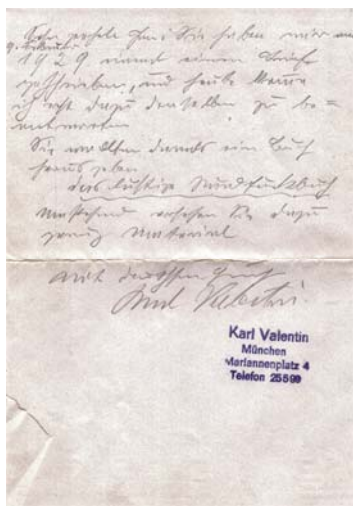 Sehr geehrte Frau! Sie haben mir am
9. 
1929 einen Brief
geschrieben, und heute komme
ich erst dazu denselben zu be=
antworten
Sie wollten damals ein Buch
heraus geben
das lustige Rundfunkbuch
umstehend ersehen Sie dazu
Material
mit
Karl Valentin
Karl Valentin
München
Mariannenplatz 4
Telefon 25599